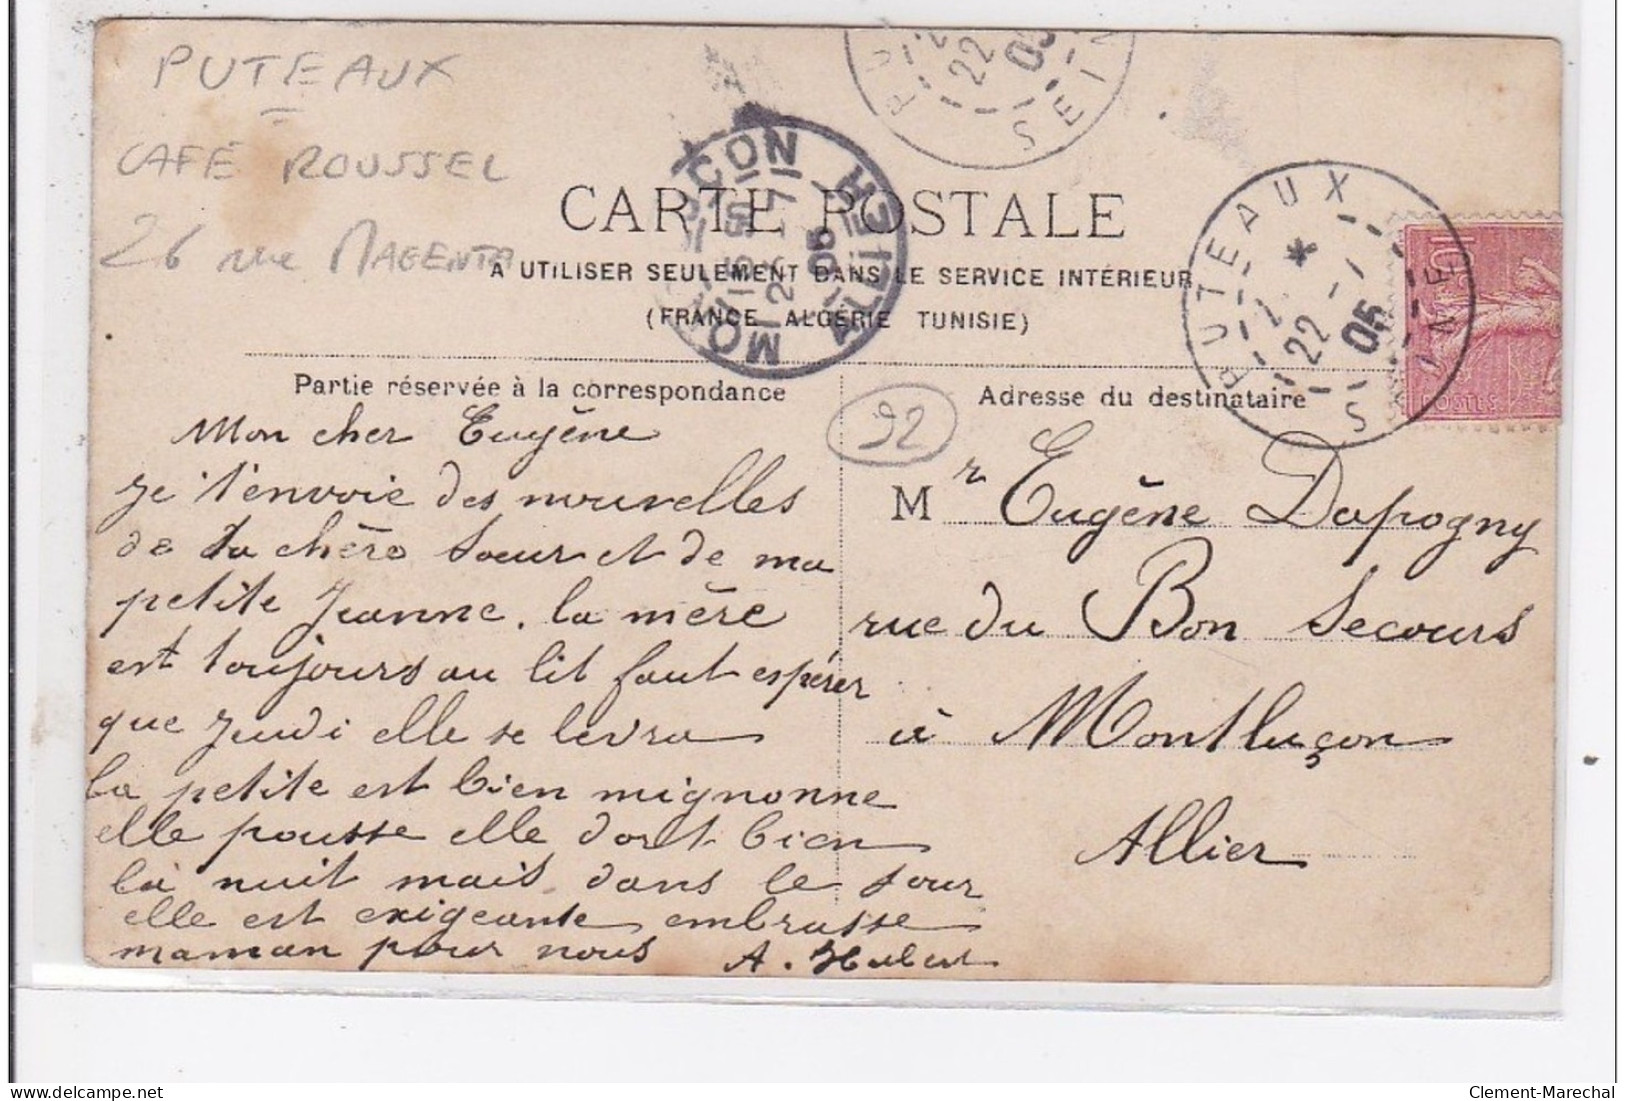 PUTEAUX
CAFÉ ROUSSEL
26 rue MAGENTA
CARTE POSTALE
A UTILISER SEULEMENT DANS LE SERVICE INTÉRIEUR
(FRANCE ALGÉRIE TUNISIE)
PUTEAUX
22
05
SEINE
MONTLUÇON
ALLIER
05
PUTEAUX
22
05
SEINE
10c
POSTES
Partie réservée à la correspondance
Adresse du destinataire
92
Mon cher Eugène
je t'envoie des nouvelles
de ta chère soeur et de ma
petite Jeanne. la mère
est toujours au lit faut espérer
que jeudi elle se levra
La petite est bien mignonne
elle pousse elle dort bien
la nuit mais dans le jour
elle est exigeante embrasse
maman pour nous A. Hubert
Mr Eugène Dapogny
rue du Bon Secours
à Montluçon
Allier
delcampe.net
Clement-Marechal